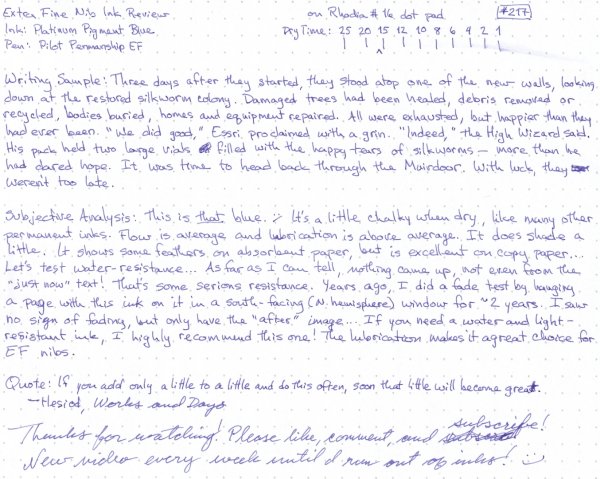 Extra Fine Nib Ink Review on Rhodia #16 dot pad #217
Ink: Platinum Pigment Blue Dry Time: 25 20 15 12 10 8 6 4 2 1
Pen: Pilot Penmanship EF
Writing Sample: Three days after they started, they stood atop one of the new walls, looking
down at the restored silkworm colony. Damaged trees had been healed, debris removed or
recycled, bodies buried, homes and equipment repaired. All were exhausted, but happier than they
had ever been. "We did good," Essri proclaimed with a grin. "Indeed," the High Wizard said.
His pack held two large vials filled with the happy tears of silkworms — more than he
had dared hope. It was time to head back through the Muirdoor. With luck, they
weren't too late.
Subjective Analysis: This is that blue. :-) It's a little chalky when dry, like many other
permanent inks. Flow is average and lubrication is above average. It does shade a
little. It shows some feathers on absorbent paper, but is excellent on copy paper....
Let's test water-resistance... As far as I can tell, nothing came up, not even from the
"just now" text! That's some serious resistance. Years ago, I did a fade test by hanging
a page with this ink on it in a south-facing (N. hemisphere) window for ~2 years. I saw
no sign of fading, but only have the "after" image.... If you need a water and light-
resistant ink, I highly recommend this one! The lubrication makes it a great choice for
EF nibs.
Quote: If you add only a little to a little and do this often, soon that little will become great.
—Hesiod, Works and Days
Thanks for watching! Please like, comment, and subscribe!
New video every week until I run out of inks! :-)